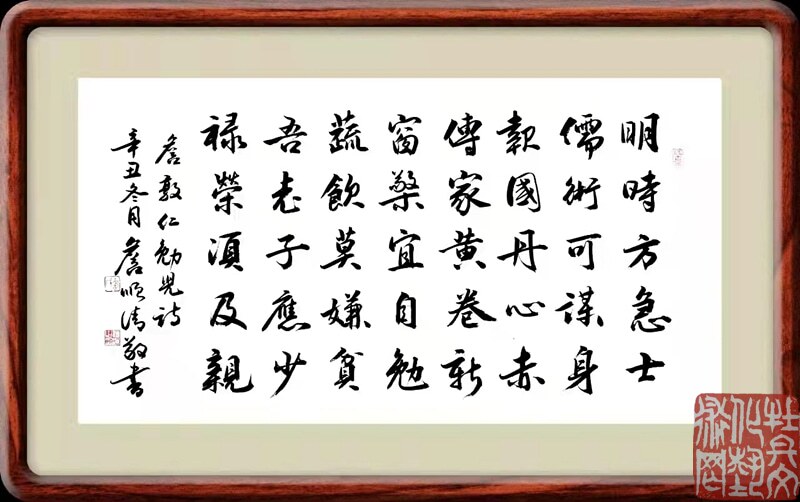 明時方急士
儒術可謀身
報國丹心赤
傳家黄卷新
窗檠宜自勉
蔬飲莫嫌貧
吾老子應少
禄榮須及親
詹敦仁勉兒詩
辛丑冬月詹順清敬書